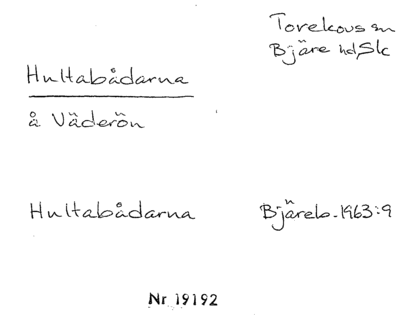 Torekovs sn
Bjäre hd, Slc
Hultabådarna
å Väderön
Hultabådarna Bjäreb. 1963:9
Nr 19192